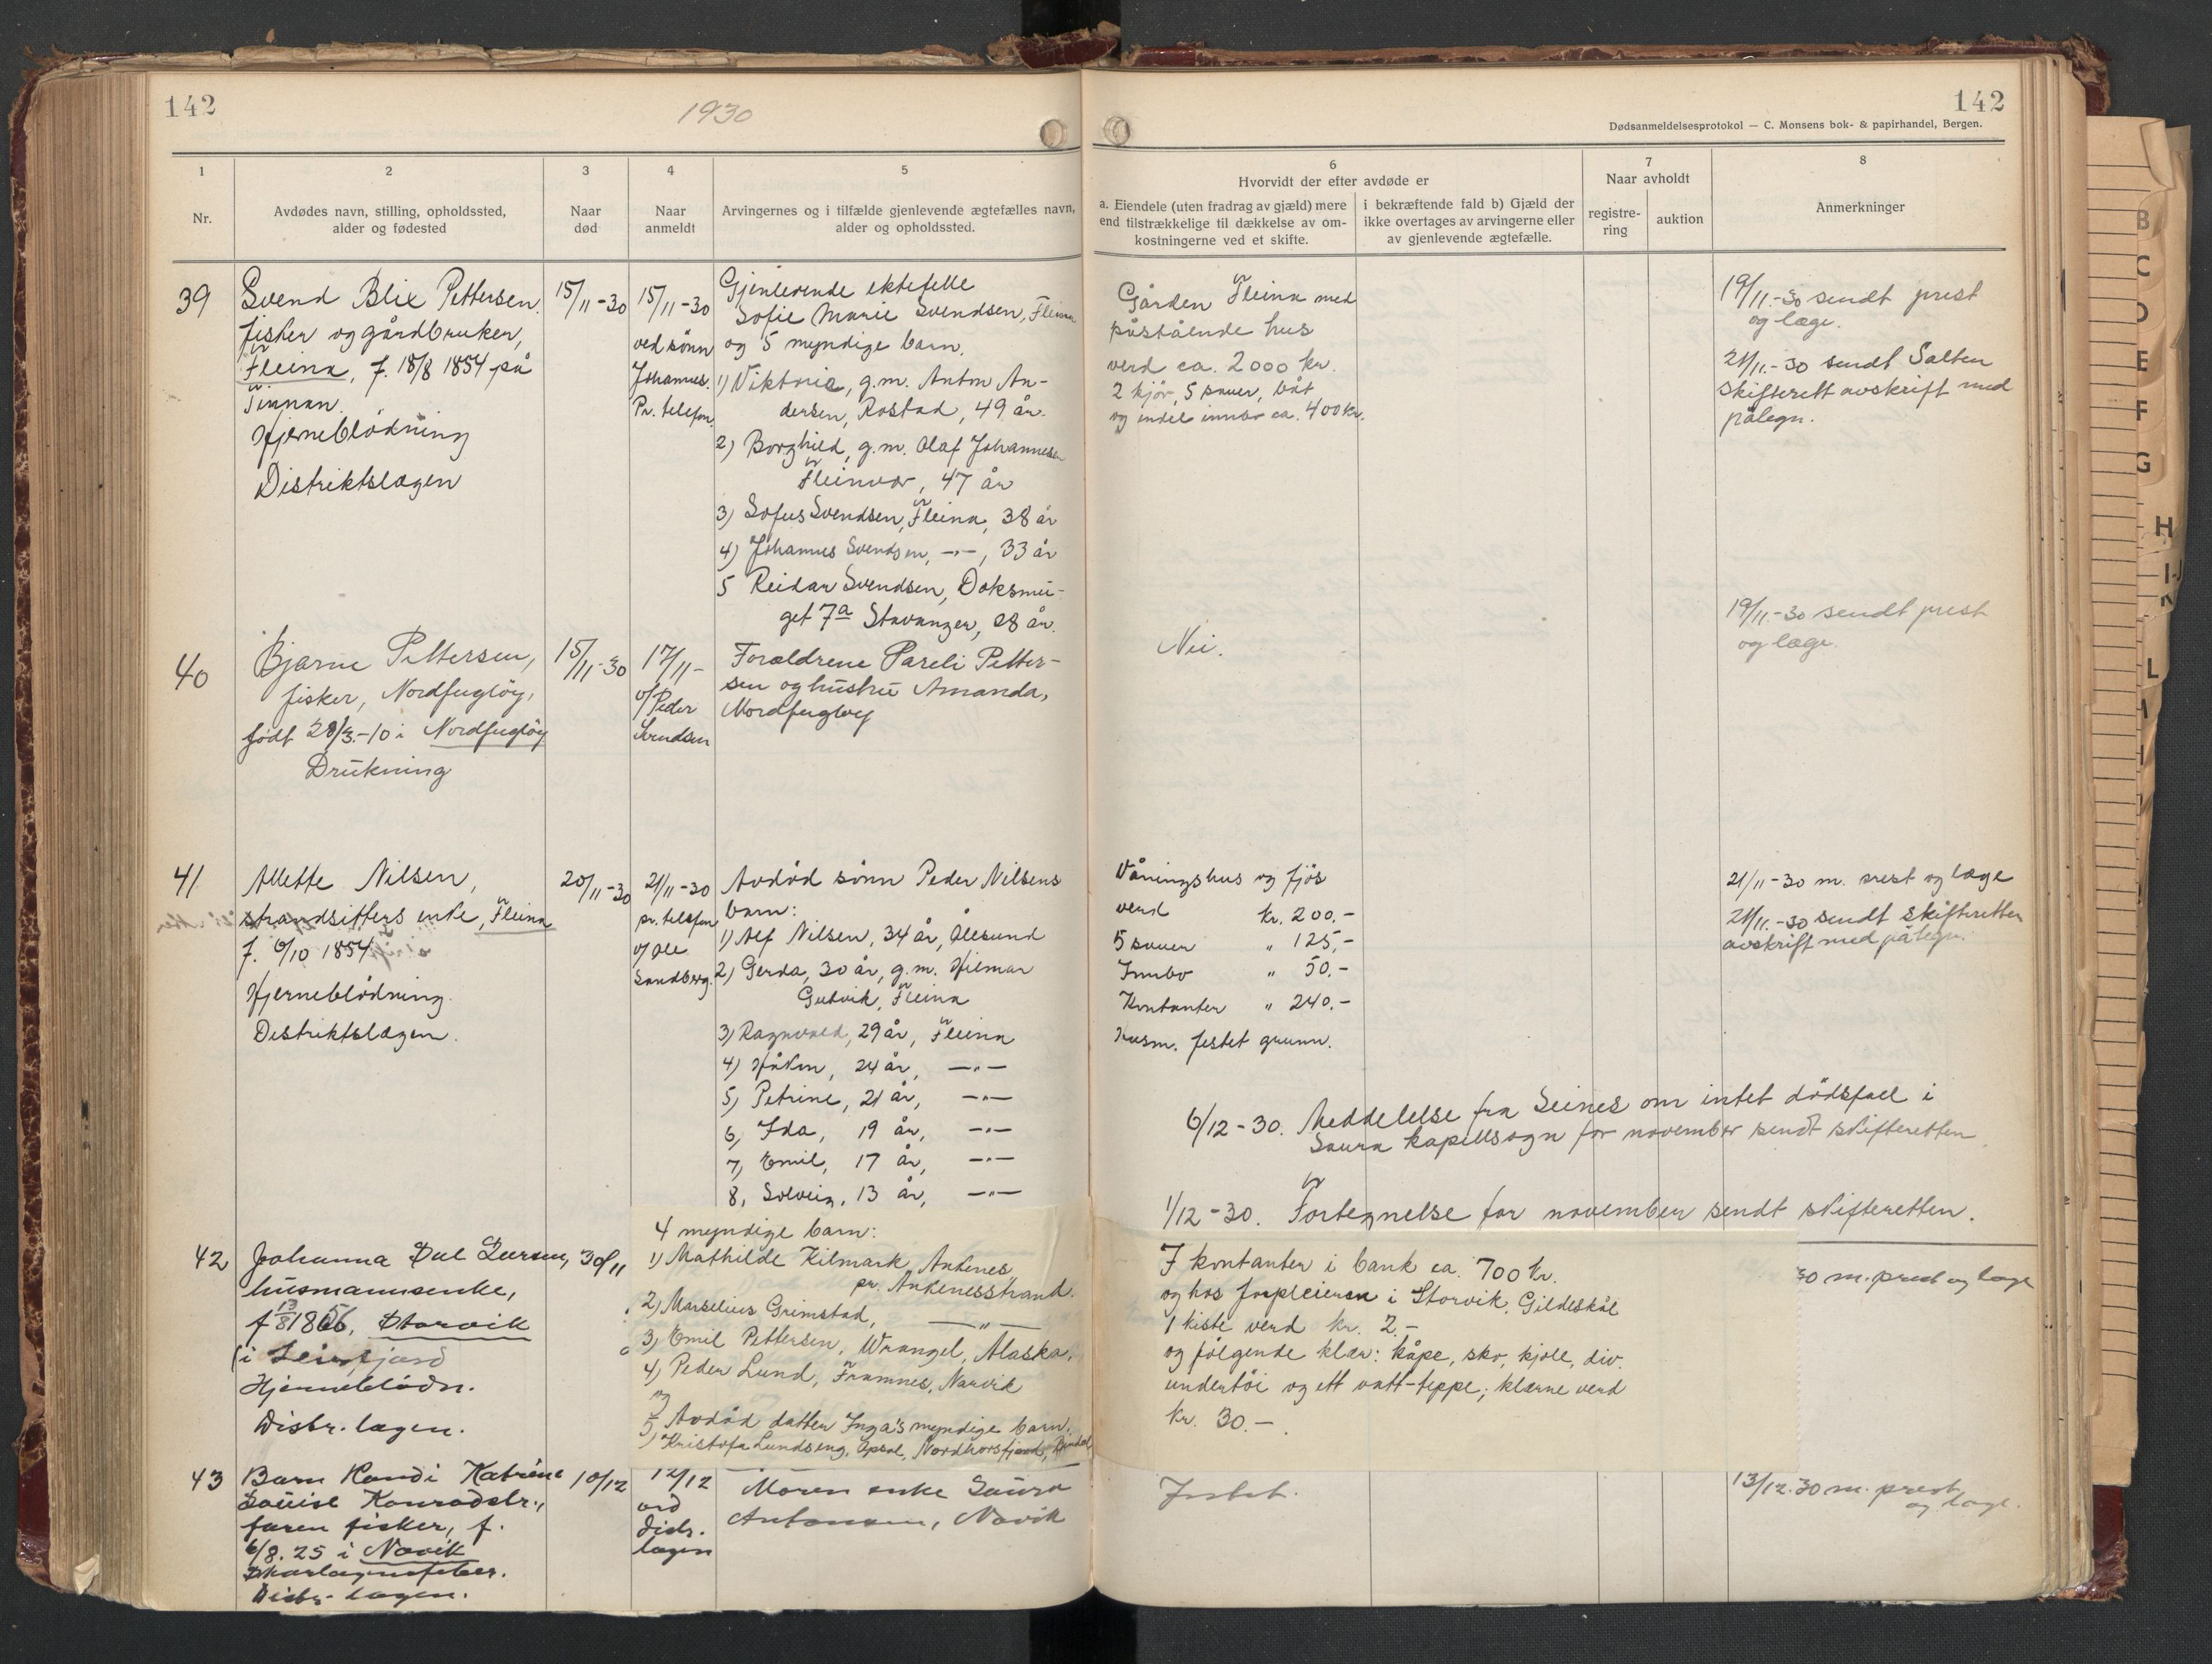 142
1930
142
Dødsanmeldelsesprotokol — C. Monsens bok- & papirhandel, Bergen.
1
Nr.
2
Avdødes navn, stilling, opholdssted,
alder og fødested
3
Naar
død
4
Naar
anmeldt
5
Arvingernes og i tilfælde gjenlevende ægtefælles navn,
alder og opholdssted.
6
Hvorvidt der efter avdøde er
a. Eiendele (uten fradrag av gjæld) mere
end tilstrækkelige til dækkelse av om-
kostningerne ved et skifte.
i bekræftende fald b) Gjæld der
ikke overtages av arvingerne eller
av gjenlevende ægtefælle.
7
Naar avholdt
registre-
ring
auktion
8
Anmerkninger
39
Svend Blix Pettersen.
fisker og gårdbruker,
Fleina, f. 18/8 1854 på
Hjerneblödning
Distriktslægen
15/11-30
15/11-30
ved sønn
Johannes.
Pr. telefon.
Gjenlevende ektefelle
Sofie Marie Svendsen, Fleina
og 5 myndige barn.
1) Viktoria, g.m. Anton An-
dersen, Rostad, 49 år.
2) Borghild, g.m. Olaf Johannesen
Fleinvær, 47 år
3) Sofus Svendsen, Fleina, 38 år
4) Johannes Svendsen, -"-, 33 år
5 Reidar Svendsen, Doksmu-
get 7a Stavanger, 28 år.
Gården Fleina med
påstående hus
verd ca. 2000 kr.
2 kjør, 5 sauer, båt
og endel innbo ca. 400 kr.
19/11.-30 sendt prest
og læge.
21/11.-30 sendt Salten
skifterett avskrift med
pålegn.
40
Bjarne Pettersen,
fisker, Nordfugløy,
født 28/3.-10 i Nordfugløy
Drukning
15/11-30
17/11-
v/Peder
Svendsen
Foreldrene Pareli Petter-
sen og hustru Amanda,
Nordfugløy
Nei.
19/11.-30 sendt prest
og læge.
41
Allette Nilsen,
strandsitters enke, Fleina
f. 6/10 1854
Hjerneblödning.
Distriktslægen.
20/11-30
21/11-30
pr. telefon
v/ Ole
Sandberg.
Avdöd sönn Peder Nilsens
barn:
1) Alf Nilsen, 34 år, Ålesund
2) Gerda, 30 år, g.m. Hilmar
Gutvik, Fleina
3) Ragnvald, 29 år, Fleina
4) Håkon, 24 år, -"-
5) Petrine, 21 år, -"-
6, Ida, 19 år, -"-
7, Emil, 17 år, -"-
8, Solveig, 13 år, -"-
Våningshus og fjös
verd kr. 200.-
5 sauer " 125,-
Innbo " 50.-
Kontanter " 240.-
Husm. festet grunn.
21/11-30 m. prest og læge
21/11.-30 sendt skifteretten
avskrift med pålegn.
6/12-30. Meddelelse fra Seines om intet dödsfall i
Saura kapellsogn for november sendt skifteretten.
1/12-30. Fortegnelse for november sendt skifteretten.
42
Johanna Dal Larsen,
husmannsenke,
f 13/8 1856, Storvik
(i Leirfjord
Hjerneblödn.
Distr. lægen.
30/11
4 myndige barn:
1) Mathilde Kilmark, Ankenes,
pr. Ankenesstrand.
2) Marselius Grimstad, -"-
3) Emil Pettersen, Wrangel, Alaska.
4) Peder Lund, Framnes, Narvik
5) Avdöd datter Inga's myndige barn.
1) Kristofa Lundseng, Opsal, Nordhorsfjord, Bindal
I kontanter i bank ca. 700 kr.
og hos forpleieren i Storvik, Gildeskål
1 kiste verd kr. 2.-
og fölgende klær: kåpe, sko, kjole, div.
undertöi og ett vatt-teppe; klærne verd
kr. 30.-
30 m. prest og læge
43
Barn Randi Katrine
Louise Konradstr.,
faren fisker, f.
6/8. 25 i Novik
Skarlagensfeber.
Distr. lægen.
10/12
12/12
ved
distr.
lægen
Moren enke Laura
Antonsen, Novik
Intet.
13/12.30 m. prest
og læge.
B
C
D
E
F
G
H
I-J
K
L